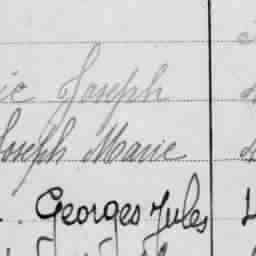 ic Joseph
Joseph Marie
Georges Jules